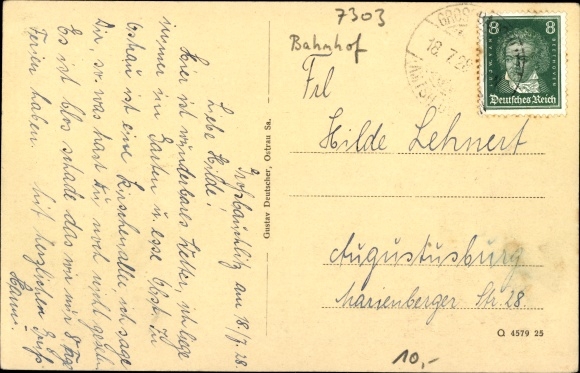 Großbauchlitz am 18/7. 28.
Liebe Hilde!
Hier ist wunderbares Wetter, ich liege
immer im Garten u. esse Obst. In
ist eine Kirschenallee ich sage
Dir, so was hast Du noch nicht gesehen
Es ist blos schade das wir nur 8 Tage
Ferien haben. Mit herzlichen Gruß
Hann.
Gustav Deutscher, Ostrau Sa.
7303
Bahnhof
Frl
Hilde Lehnert
Augustusburg
Marienberger Str. 28.
Q 4579 25
10,-
8 8
BEETHOVEN
Deutsches Reich
18. 7. 28